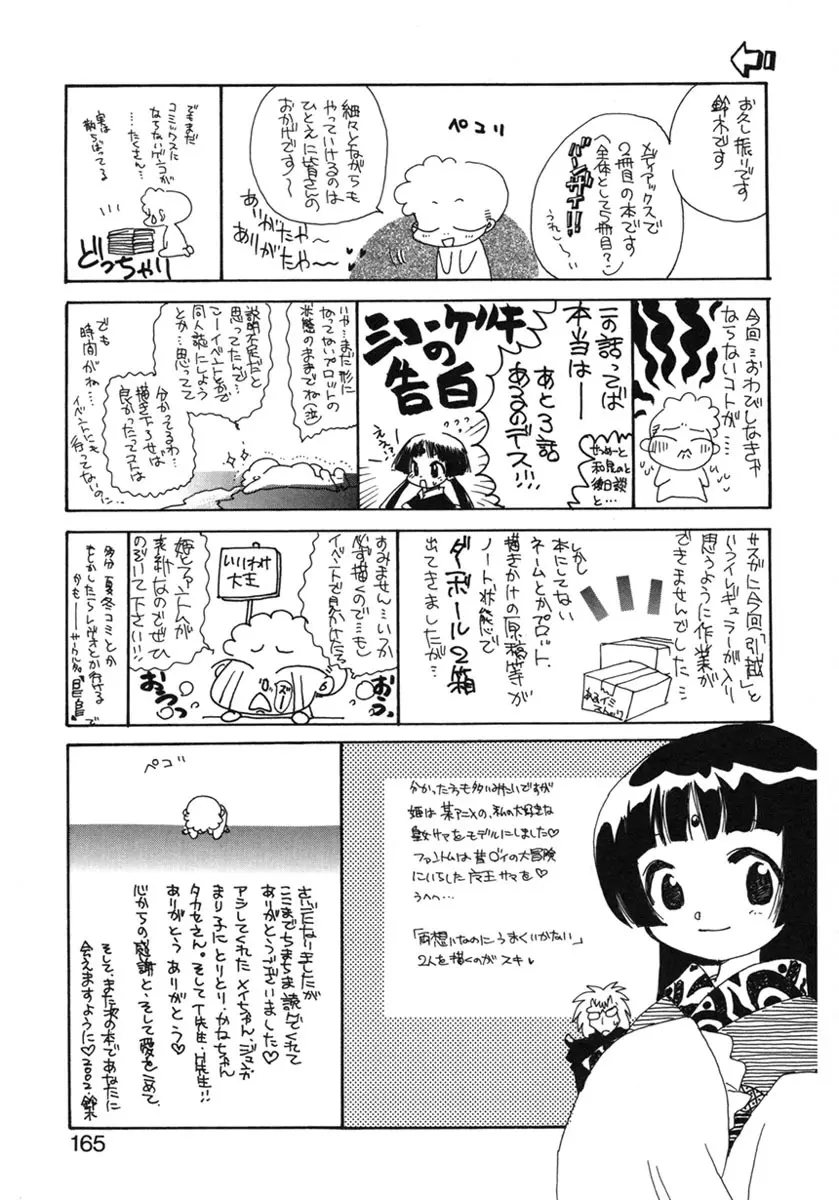 お久し振りです
鈴木です
メディアックスで
2冊目の本です
(全体として5冊目?)
バンザーイ!!
うれしー
ペコリ
細々とながらも
やっていけるのは
ひとえに皆さんの
おかげです〜
ありがたや〜
ありがたや〜
でもまだ
コミックスに
ならないゲンコが
…たくさん…
実は
散らばってる
どっちゃり
今回…おわびしなきゃ
ならないコトが……
この話ってば
本当は――
あと3話
あるのデス!!!
せつめーと
和見のと
後日談
と…
ミユーゲルキ
の
告白
えぇっ
いや…まだ形に
なってないプロットの
状態のままでね(泣)
説明不足だと
思ってたんで…
こーイベントとかで
同人誌にしよう
とか…思ってて
分かってるわ…
描き下ろせば
良かったってコトは
でも
時間がね…
イベントにも
行ってないのに…
サスがに今回「引越し」と
いうイレギュラーが入り
思うように作業が
できませんでした…
しかし
本にしてない
ネームとかプロット、
描きかけの原稿等が
ノート状態で
ダンボール2箱
出てきましたが…
すみません…いつか
必ず描くので…も
イベントで見かけたら
いいわけ
大王
ズー
おうっ
おうっ
姫とファントムが
表紙なのでぜひ
のぞいて下さい!!!
多分 夏冬コミとか
もしかしたらレヴォとか行けるかも――
サークル『昌昌』で
分かった方も多いみたいですが
姫は某アニメの、私の大好きな
皇女サマをモデルにしました♡
ファントムは昔ダイの大冒険
にいらした大王サマを♡
うへへ…
「両想いなのにうまくいかない」
2人を描くのがスキ♥
ペコリ
さいごになりましたが
ここまでちまちま読んでくれて
ありがとうございました♡
アシしてくれたメイちゃん、ジュンカ
まり子にとりとり・かなちゃん
タカセさん。そしてT先生・H先生!!
ありがとうありがとう♡
心からの感謝と、そして愛をこめて。
そして、また次の本であなたに
会えますように♡2002.鈴木
165